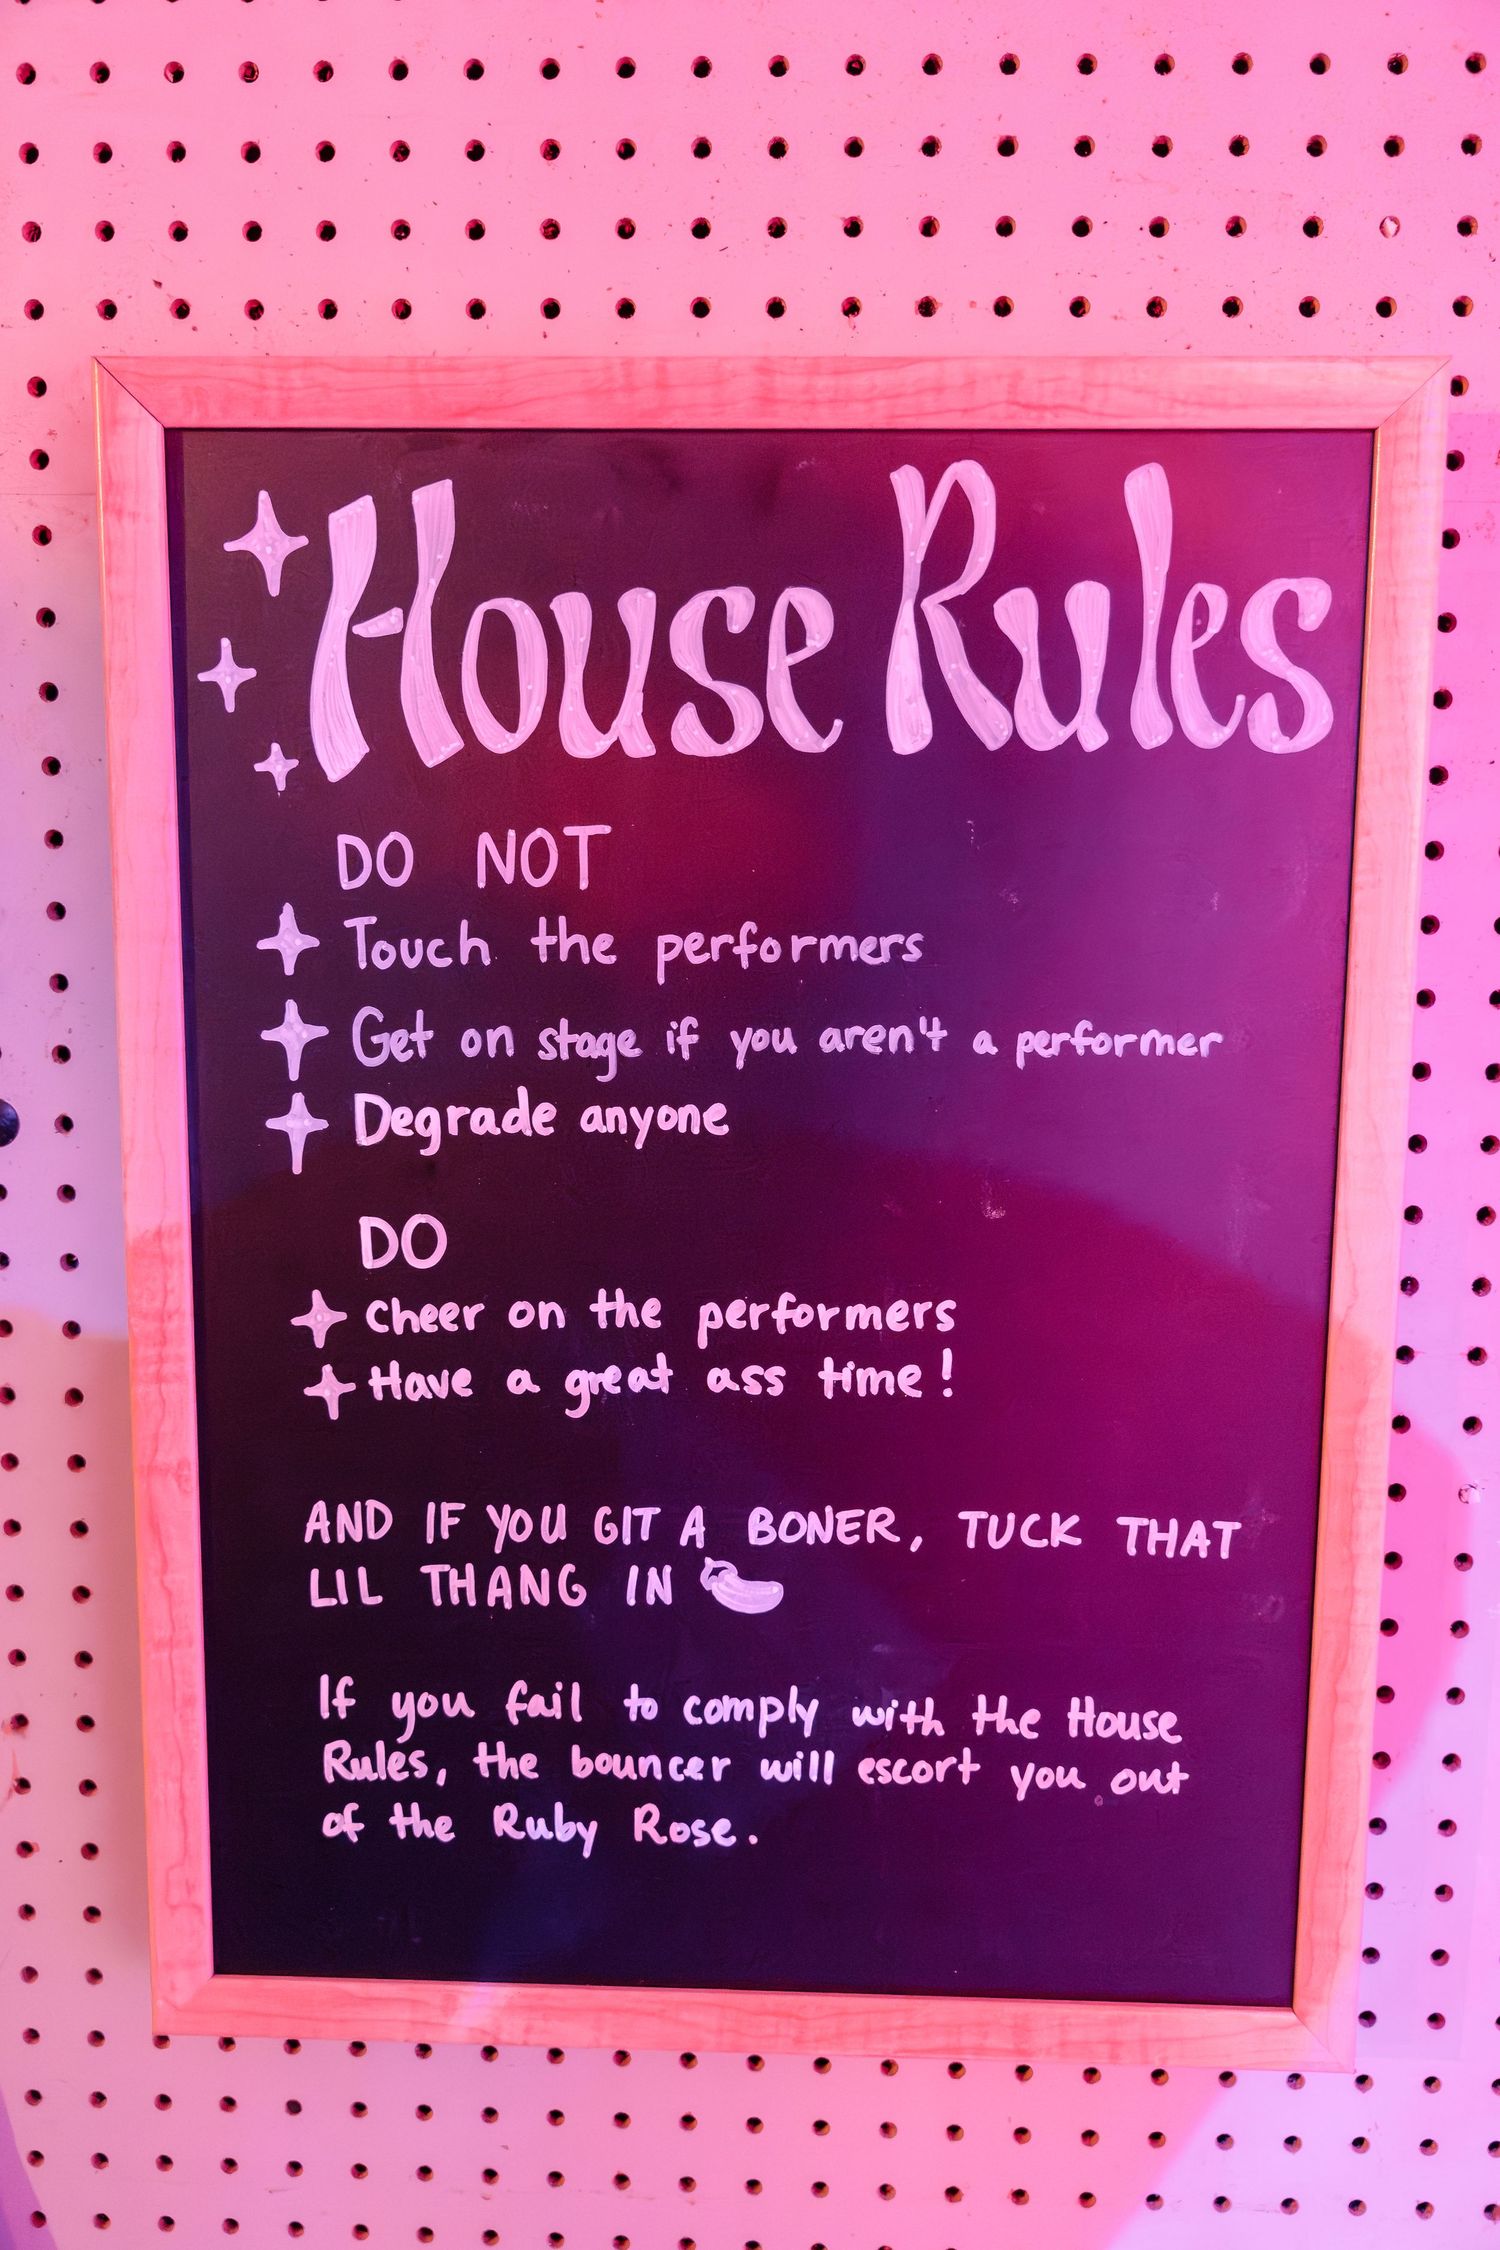 House Rules
DO NOT
Touch the performers
Get on stage if you aren't a performer
Degrade anyone
DO
Cheer on the performers
Have a great ass time!
AND IF YOU GIT A BONER, TUCK THAT
LIL THANG IN
If you fail to comply with the House
Rules, the bouncer will escort you out
of the Ruby Rose.